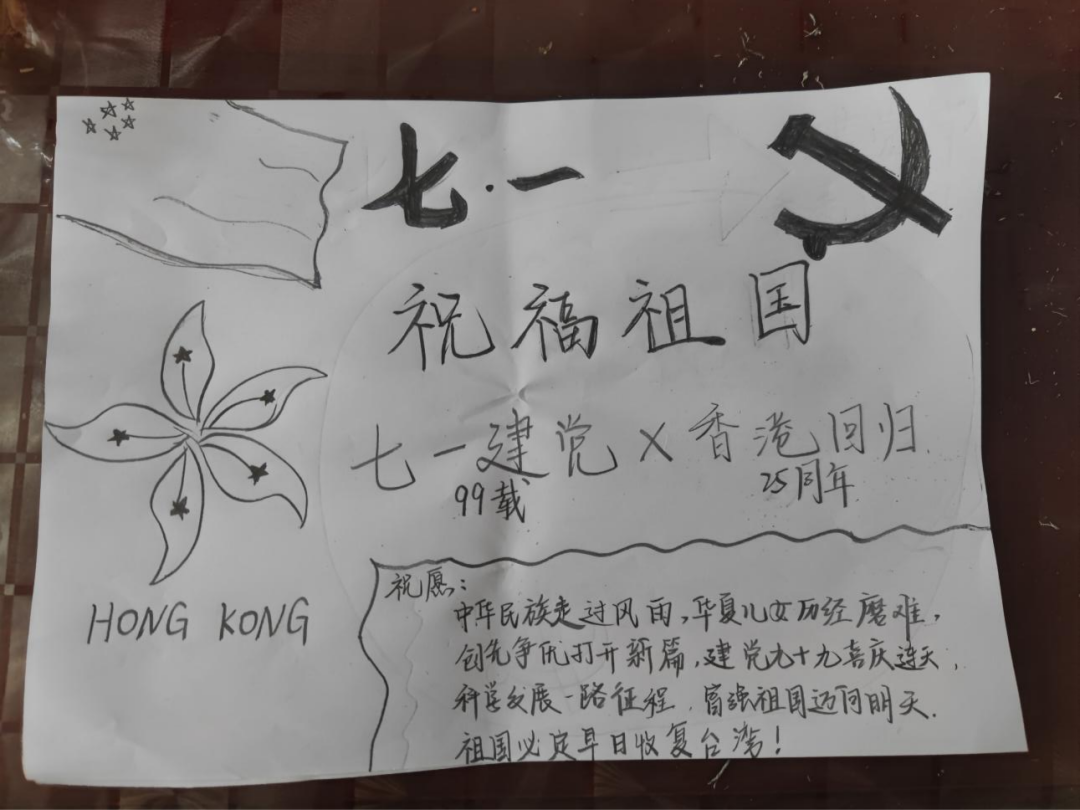 七·一
祝福祖国
七一建党 X 香港回归
99载 25周年
HONG KONG
祝愿:
中华民族走过风雨,华夏儿女历经磨难,
创先争优打开新篇,建党九十九喜庆连天,
科学发展一路征程,富强祖国迈向明天.
祖国必定早日收复台湾!